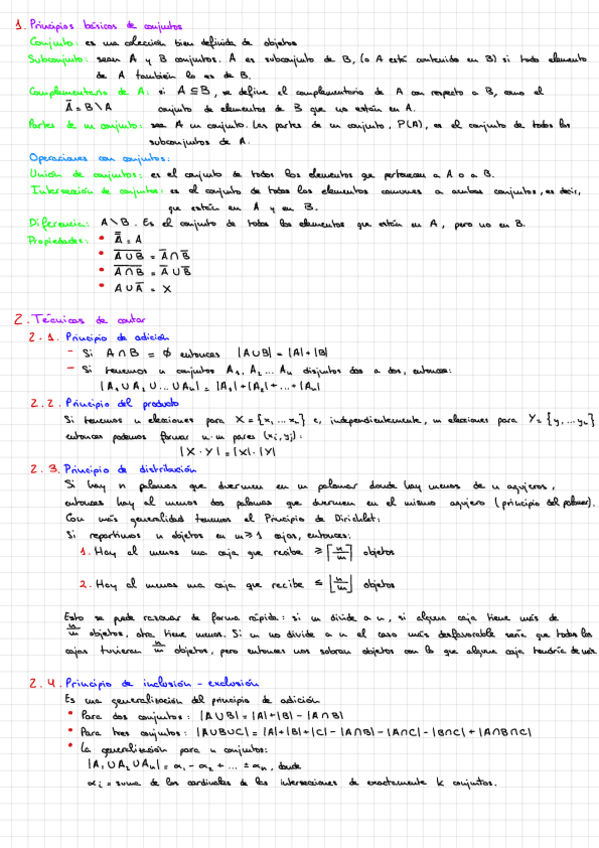 1. Principios básicos de conjuntos
Conjunto: es una colección bien definida de objetos
Subconjunto: sean A y B conjuntos. A es subconjunto de B, (o A está contenido en B) si todo elemento
de A también lo es de B.
Complementario de A: si A ⊆ B, se define el complementario de A con respecto a B, como el
Ā = B \ A conjunto de elementos de B que no están en A.
Partes de un conjunto: sea A un conjunto. Las partes de un conjunto, P(A), es el conjunto de todos los
subconjuntos de A.
Operaciones con conjuntos:
Unión de conjuntos: es el conjunto de todos los elementos que pertenecen a A o a B.
Intersección de conjuntos: es el conjunto de todos los elementos comunes a ambos conjuntos, es decir,
que están en A y en B.
Diferencia: A \ B. Es el conjunto de todos los elementos que están en A, pero no en B.
Propiedades: • A̿ = A
• \overline{A ∪ B} = Ā ∩ B̄
• \overline{A ∩ B} = Ā ∪ B̄
• A ∪ Ā = X
2. Técnicas de contar
2.1. Principio de adición
- Si A ∩ B = ∅ entonces |A ∪ B| = |A| + |B|
- Si tenemos n conjuntos A₁, A₂ ... Aₙ disjuntos dos a dos, entonces:
|A₁ ∪ A₂ ∪ ... ∪ Aₙ| = |A₁| + |A₂| + ... + |Aₙ|
2.2. Principio del producto
Si tenemos n elecciones para X = {x₁ ... xₙ} e, independientemente, m elecciones para Y = {y₁ ... yₘ}
entonces podemos formar n·m pares (xᵢ, yⱼ):
|X · Y| = |X| · |Y|
2.3. Principio de distribución
Si hay n palomas que duermen en un palomar donde hay menos de n agujeros,
entonces hay al menos dos palomas que duermen en el mismo agujero (principio del palomar).
Con más generalidad tenemos el Principio de Dirichlet:
Si repartimos n objetos en m ≥ 1 cajas, entonces:
1. Hay al menos una caja que recibe ≥ ⌈n/m⌉ objetos
2. Hay al menos una caja que recibe ≤ ⌊n/m⌋ objetos
Esto se puede razonar de forma rápida: si m divide a n, si alguna caja tiene más de
n/m objetos, otra tiene menos. Si m no divide a n el caso más desfavorable sería que todas las
cajas tuvieran n/m objetos, pero entonces nos sobran objetos con lo que alguna caja tendría de más.
2.4. Principio de inclusión - exclusión
Es una generalización del principio de adición
• Para dos conjuntos: |A ∪ B| = |A| + |B| - |A ∩ B|
• Para tres conjuntos: |A ∪ B ∪ C| = |A| + |B| + |C| - |A ∩ B| - |A ∩ C| - |B ∩ C| + |A ∩ B ∩ C|
• La generalización para n conjuntos:
|A₁ ∪ A₂ ∪ Aₙ| = α₁ - α₂ + ... ± αₙ, donde
αᵢ = suma de los cardinales de las intersecciones de exactamente k conjuntos.